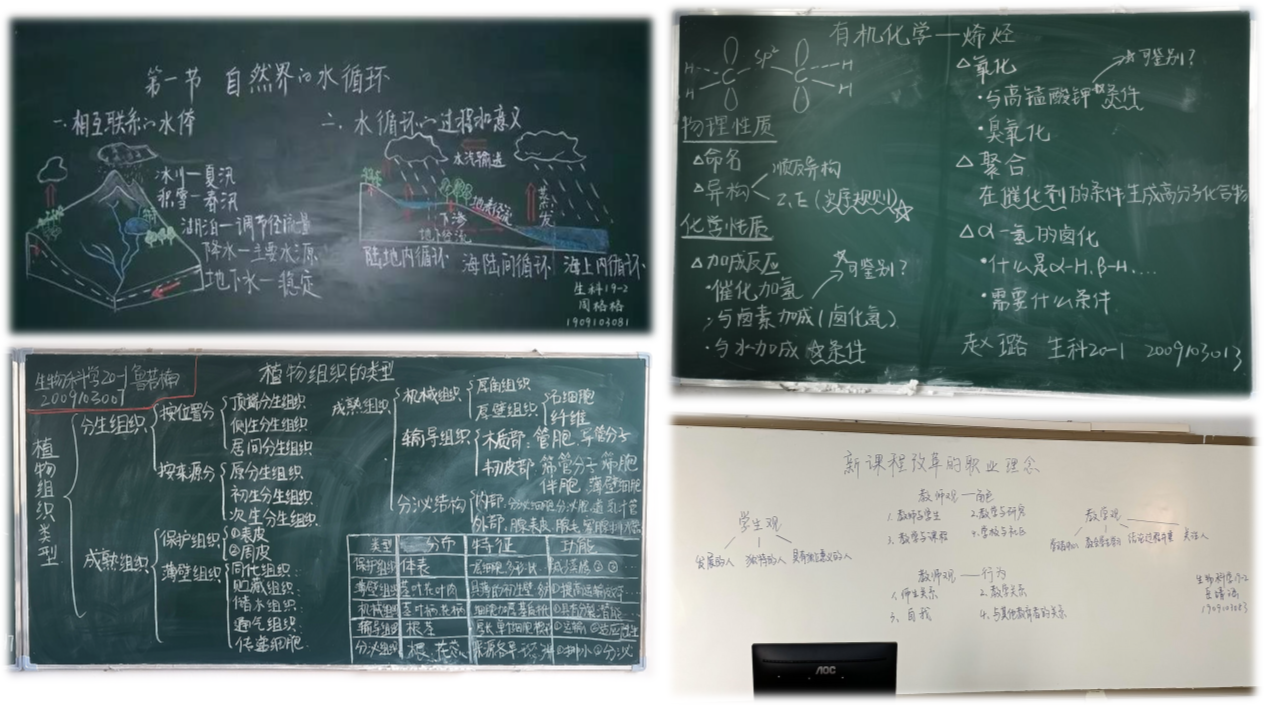 第一节 自然界的水循环
一、相互联系的水体
冰川—夏汛
积雪—春汛
湖泊—调节径流量
降水—主要水源
地下水—稳定
二、水循环的过程和意义
水汽输送
蒸发
下渗
地表径流
地下径流
陆地内循环 海陆间循环 海上内循环
生科19-2
周格格
1909103081
有机化学—烯烃
H C sp² C H
H H
物理性质
△命名
△异构
顺反异构
Z、E(次序规则)☆
化学性质
△加成反应
☆可鉴别?
·催化加氢
·与卤素加成(卤化氢)
·与水加成 ☆条件
△氧化
☆可鉴别?
·与高锰酸钾 条件
·臭氧化
△聚合
在催化剂的条件生成高分子化合物
△α-氢的卤化
·什么是α-H,β-H,...
·需要什么条件
赵璐 生科20-1 2009103013
生物科学20-1
2009103007
植物组织的类型
植物组织类型
分生组织
按位置分
顶端分生组织
侧生分生组织
居间分生组织
按来源分
原分生组织
初生分生组织
次生分生组织
成熟组织
保护组织
①表皮
②周皮
薄壁组织
同化组织
贮藏组织
储水组织
通气组织
传递细胞
成熟组织
机械组织
厚角组织
厚壁组织
石细胞
纤维
输导组织
木质部:管胞、导管分子
韧皮部:筛管分子 筛胞
伴胞 薄壁细胞
分泌结构
内部:
外部:腺表皮
类型 分布 特征 功能
保护组织 体表
薄壁组织 茎叶花叶肉
机械组织 茎叶柄花柄
输导组织 根茎
分泌组织
新课程改革的职业理念
学生观
发展的人 独特的人 具有独立意义的人
教师观—角色
1. 教师与学生 2. 教学与研究
3. 教学与课程 4. 学校与社区
教学观
关注人
教师观—行为
1. 师生关系 2. 教学关系
3. 自我 4. 与其他教育者的关系
生物科学19-2
1909103083
AOC